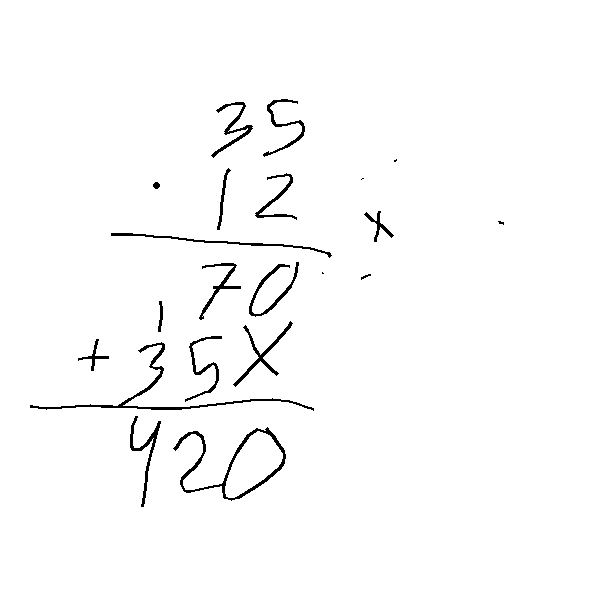 35
· 12 x
70
1
+ 35X
420